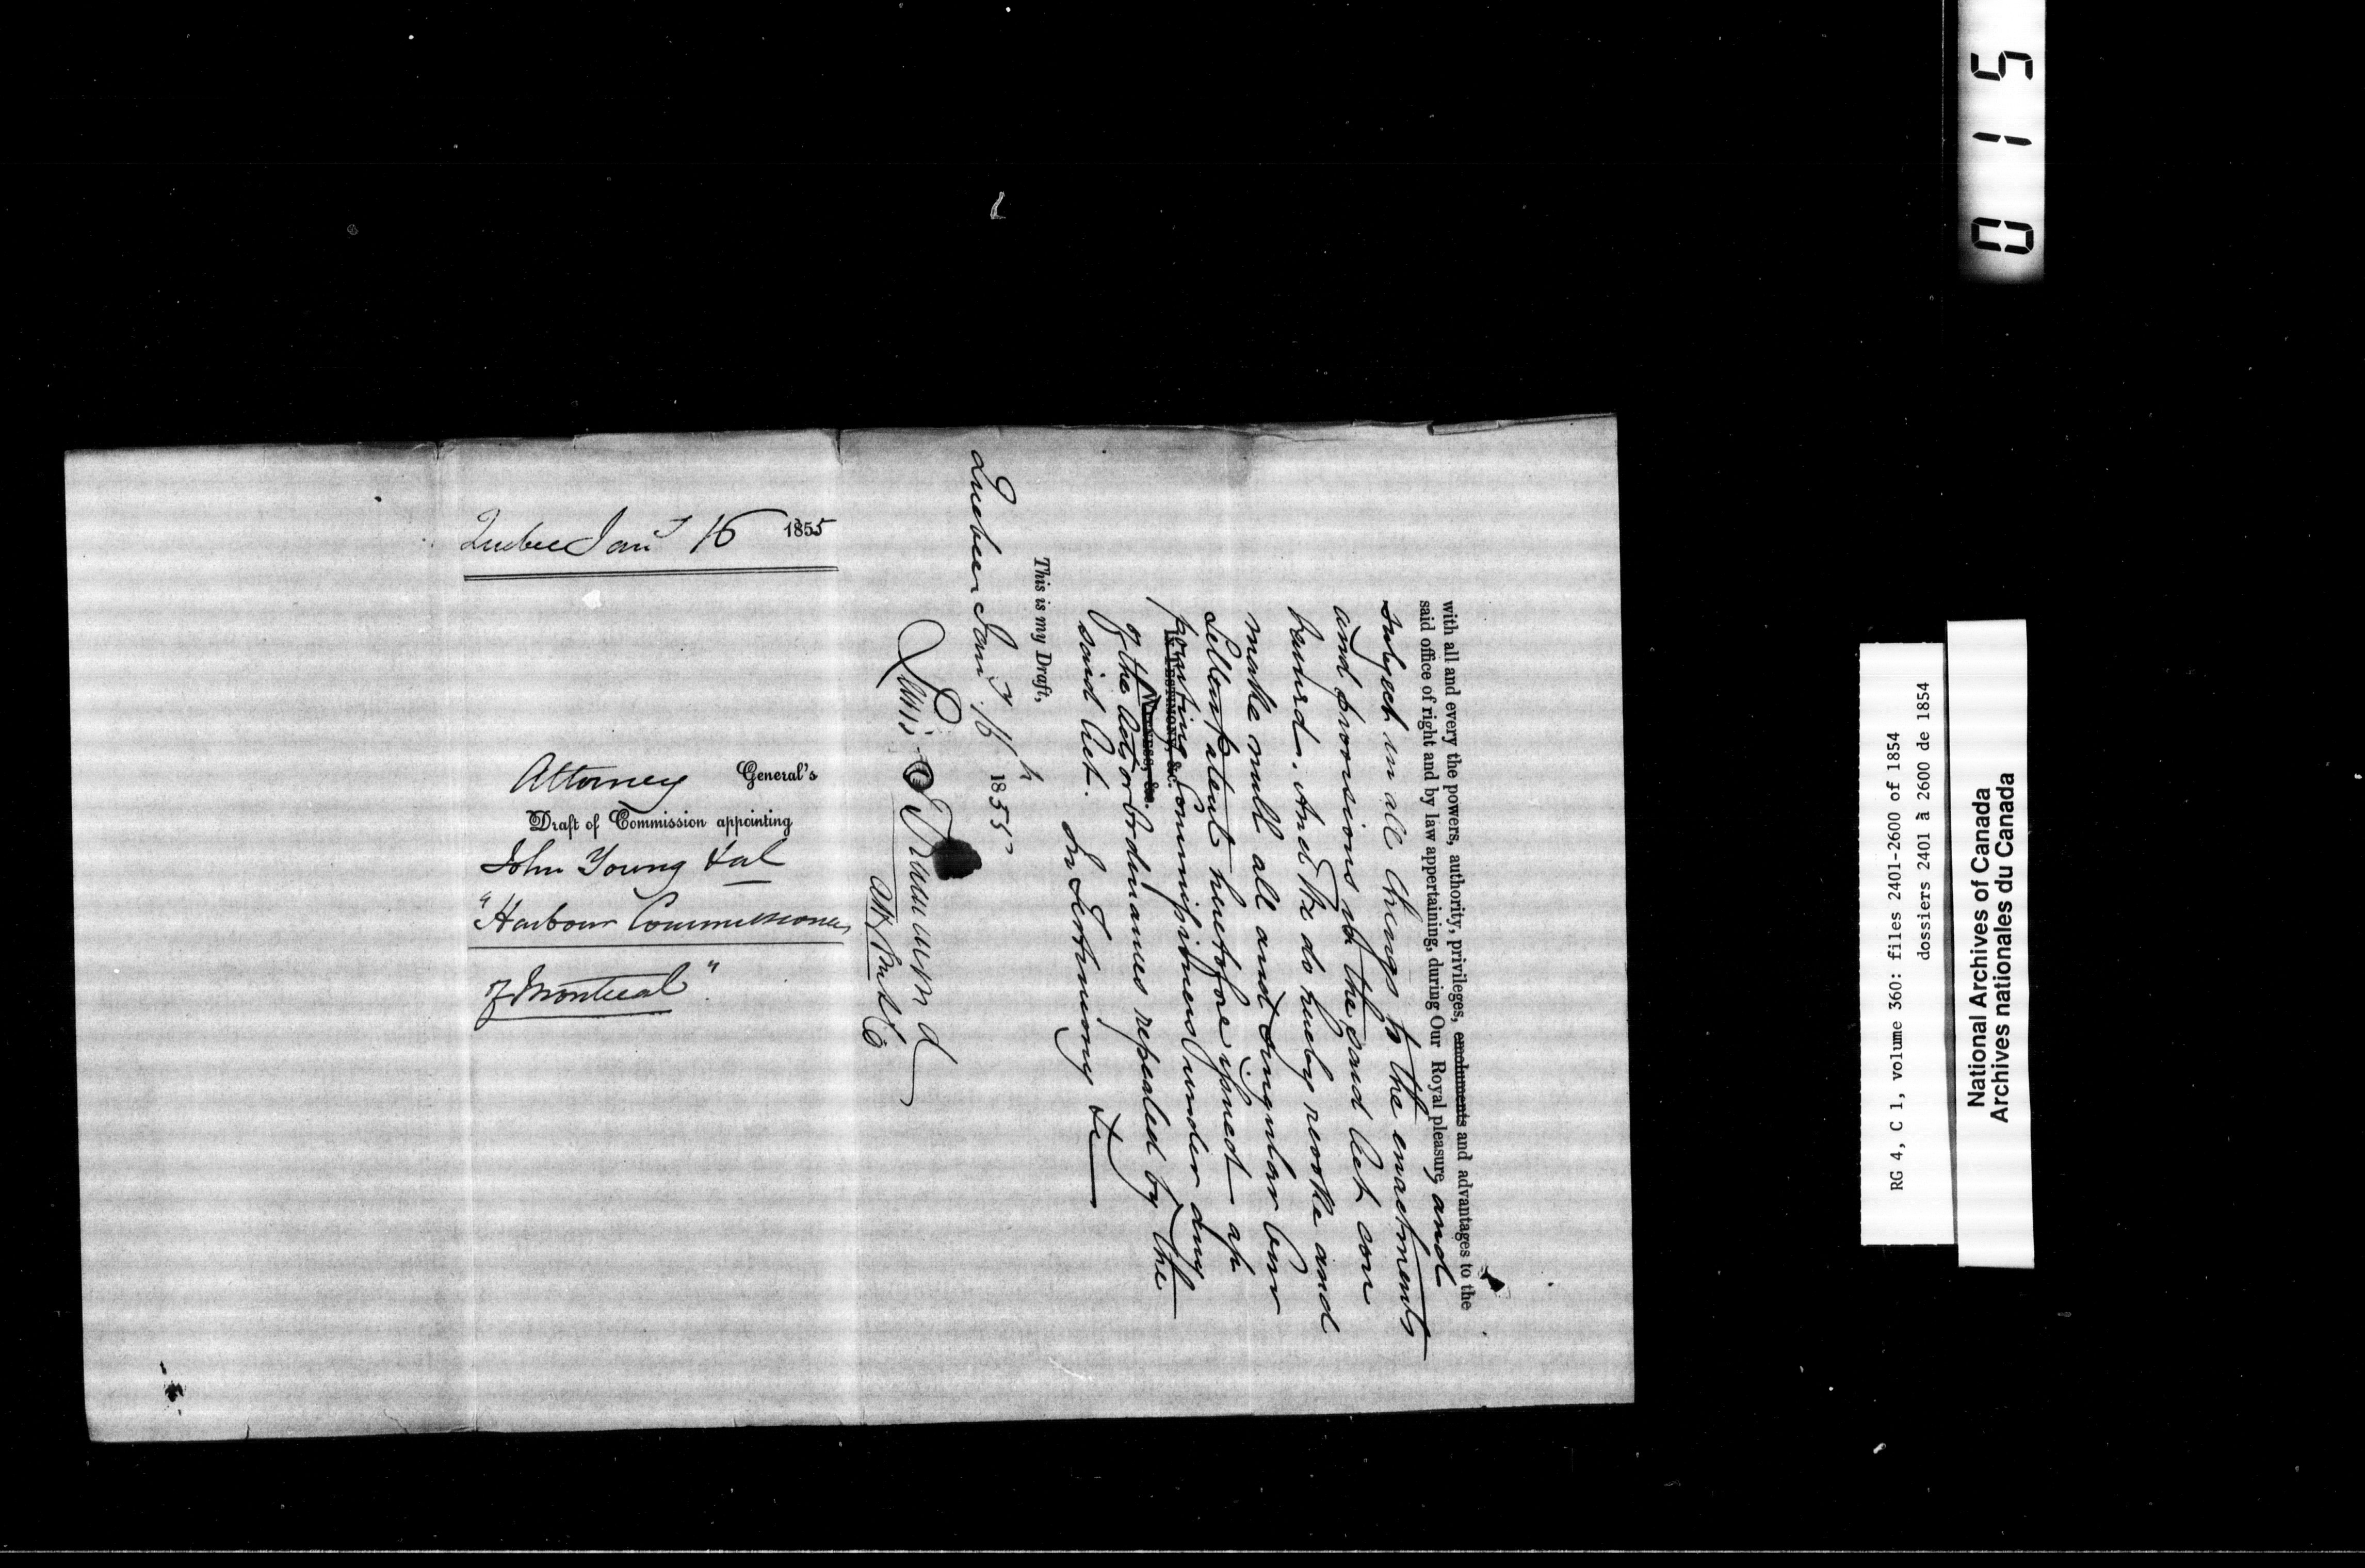 with all and every the powers, authority, privileges, emoluments and advantages to the
said office of right and by law appertaining, during Our Royal pleasure, and
subject in all things to the enactments
and provisions of the said Act con
tained. And We do hereby revoke and
make null all and Singular Our
Letters patent heretofore issued ap
pointing Commissioners under any
In Testimony, &c.
of the Acts or Ordinances repealed by the
Witness, &c.
said Act. In Testimony &c
This is my Draft,
Quebec Jany. 16th 1855
Lewis T Drummond
Atty
Quebec Jany 16 1855
Attorney General's
Draft of Commission appointing
John Young & al
"Harbour Commissioners
of Montreal".
0 1 5
RG 4, C 1, volume 360: files 2401-2600 of 1854
dossiers 2401 à 2600 de 1854
National Archives of Canada
Archives nationales du Canada